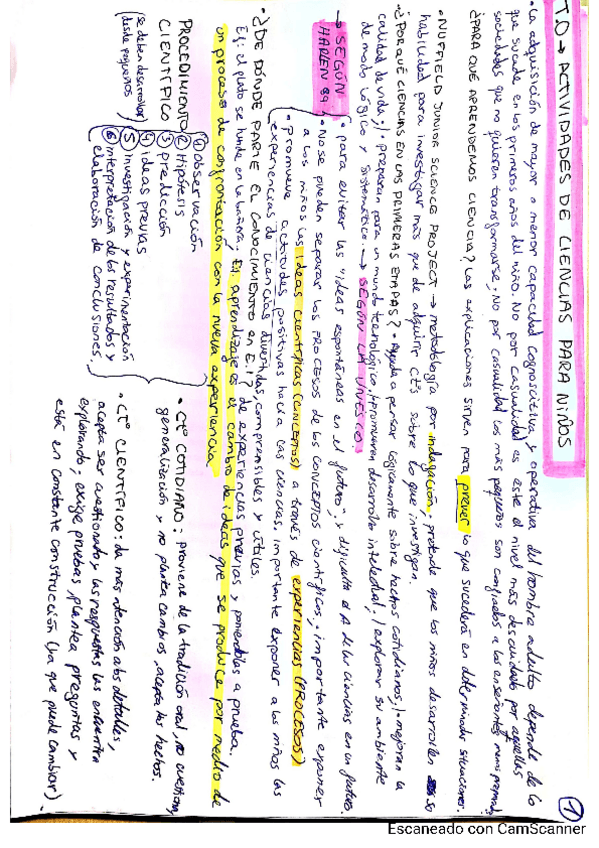 T.0 → ACTIVIDADES DE CIENCIAS PARA NIÑOS
1
• La adquisición de mayor o menor capacidad cognoscitiva y operativa del hombre adulto depende de lo
que sucede en los primeros años del niño. No por casualidad es este el nivel más descuidado por aquellas
sociedades que no quieren transformarse. No por casualidad los más pequeños son confiados a los enseñantes menos
¿PARA QUÉ APRENDEMOS CIENCIA? Las explicaciones sirven para prever lo que sucederá en determinadas situaciones.
• NUFFIELD JUNIOR SCIENCE PROJECT → metodología por indagación, pretende que los niños desarrollen su
habilidad para investigar más que de adquirir ctºs sobre lo que investigan.
• ¿POR QUÉ CIENCIAS EN LAS PRIMERAS ETAPAS? • Ayuda a pensar lógicamente sobre hechos cotidianos / mejoran la
calidad de vida / preparan para un mundo tecnológico / promueven desarrollo intelectual / explorar su ambiente
de modo lógico y sistemático. → SEGÚN LA UNESCO
→ SEGÚN
HARLEN 89
• para evitar las "ideas espontáneas en el futuro", y dificulta el A de las ciencias en un futuro.
• No se pueden separar los PROCESOS de los CONCEPTOS científicos, importante exponer
a los niños las ideas científicas (CONCEPTOS) a través de experiencias (PROCESOS)
• promueve actitudes positivas hacia las ciencias, importante exponer a los niños las
experiencias de ciencias divertidas, comprensibles y útiles.
• ¿DE DÓNDE PARTE EL CONOCIMIENTO EN E.I? de experiencias previas y ponerlas a prueba.
Ej: el pato se hunde en la bañera, El aprendizaje es el cambio de ideas que se produce por medio de
un proceso de comprobación con la nueva experiencia.
PROCEDIMIENTO
CIENTÍFICO
(se debe desarrollar
desde pequeños)
① observación
② Hipótesis
③ predicción
④ ideas previas
⑤ investigación y experimentación
⑥ interpretación de los resultados y
elaboración de conclusiones.
• Ctº COTIDIANO: proviene de la tradición oral, no cuestiona,
generalización y no plantea cambios, acepta los hechos.
• Ctº CIENTÍFICO: da más atención a los detalles,
acepta ser cuestionado y las respuestas las encuentra
explorando, exige pruebas, plantea preguntas y
está en constante construcción (ya que puede cambiar).
Escaneado con CamScanner